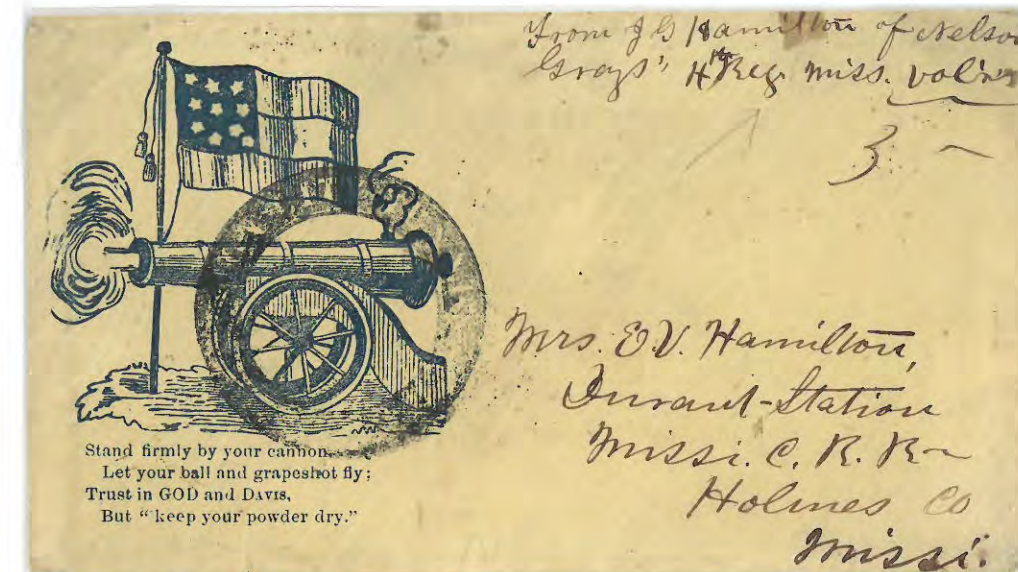 From J G Hamilton of Nelson
Grays' 4th Reg. Miss. vol'rs
3
Mrs. E V. Hamilton,
Durant-Station
Missi. C. R. R
Holmes Co
Missi.
Stand firmly by your cannon,
Let your ball and grapeshot fly;
Trust in GOD and DAVIS,
But "keep your powder dry."